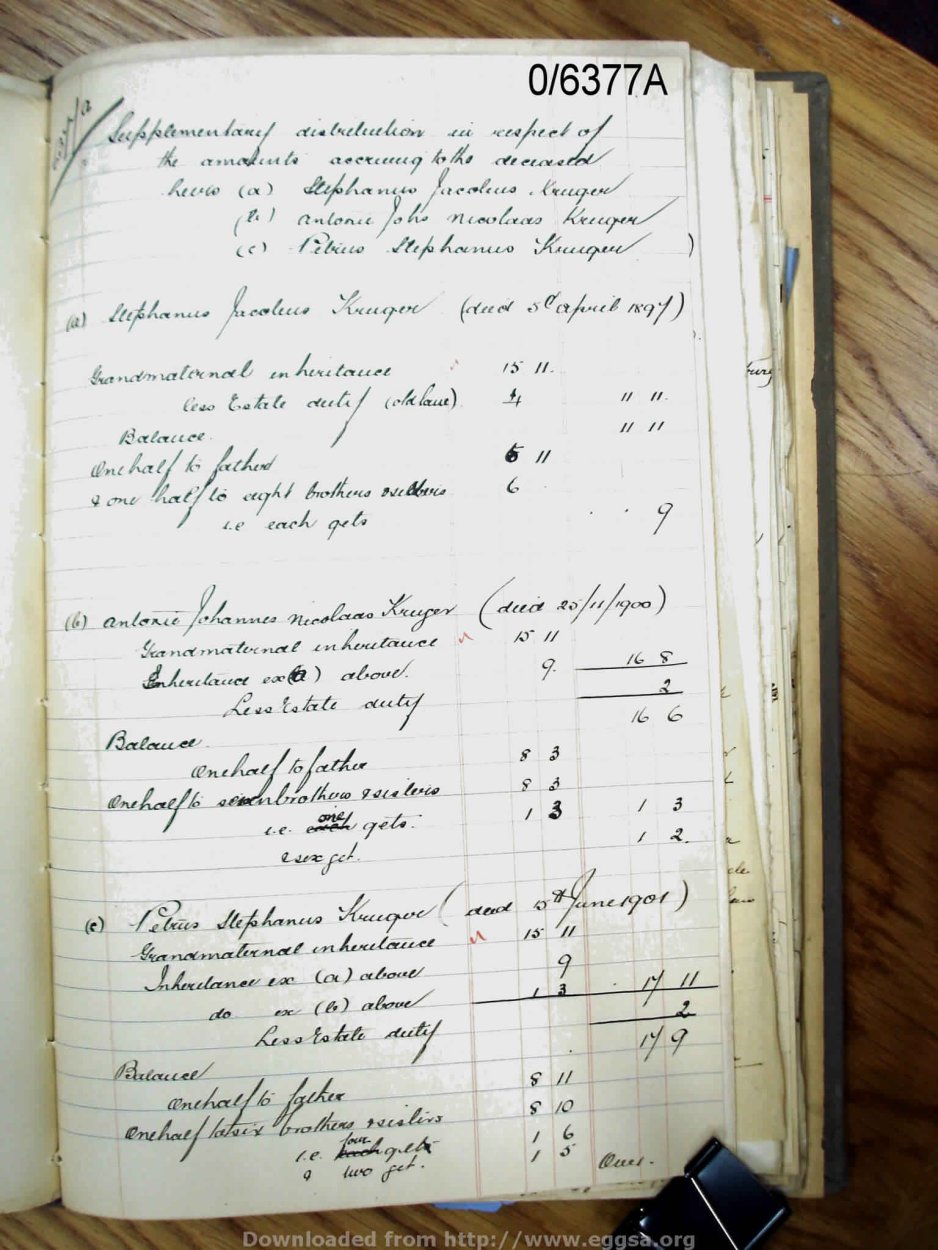 0/6377A
Supplementary distribution in respect of
the amounts accruing to the deceased
heirs (a) Stephanus Jacobus Kruger
(b) Antonie Johs Nicolaas Kruger
(c) Petrus Stephanus Kruger )
(a) Stephanus Jacobus Kruger (died 5th April 1897)
Grandmaternal inheritance 15 11.
less Estate duty (old law) 4 11 11.
Balance. 11 11
One half to father 5 11
& one half to eight brothers & sisters 6
i.e each gets 9
(b) Antonie Johannes Nicolaas Kruger (died 25/11/1900)
Grandmaternal inheritance 15 11
Inheritance ex (a) above. 9. 16 8
Less Estate duty 2
Balance. 16 6
One half to father 8 3
One half to seven brothers & sisters 8 3
i.e. one gets. 1 3 1 3
& six get. 1 2.
(c) Petrus Stephanus Kruger (died 15th June 1901)
Grandmaternal inheritance 15 11
Inheritance ex (a) above 9
do ex (b) above 1 3 17 11
Less Estate duty 2
Balance 17 9
One half to father 8 11
One half to six brothers & sisters 8 10
i.e. four get 1 6
& two get. 1 5 Over.
Downloaded from http://www.eggsa.org